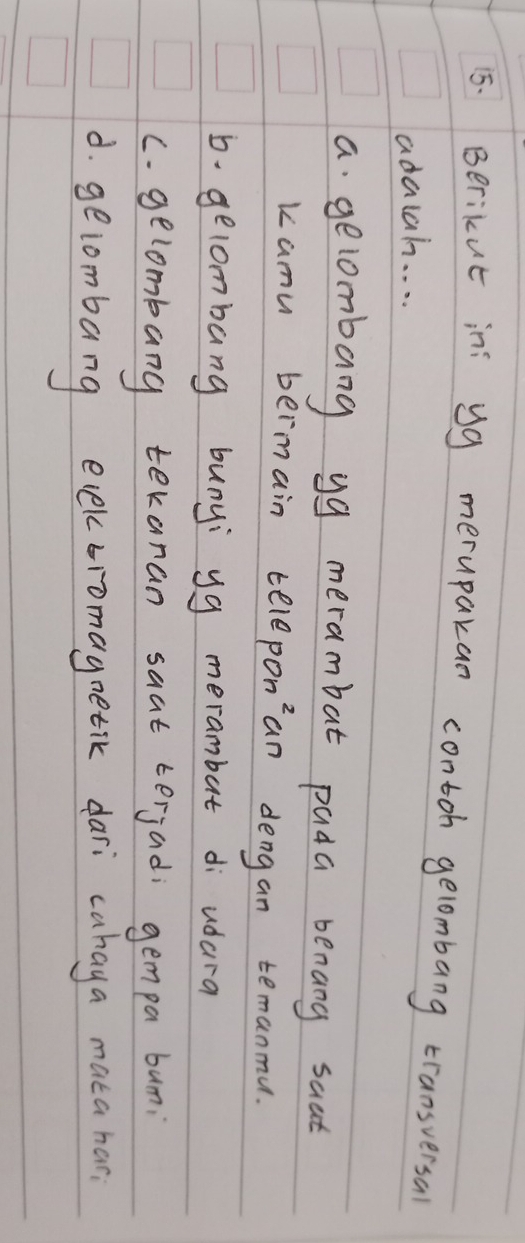 15. Berikut ini yg merupakan contoh gelombang transversal
adalah....
a. gelombang yg merambat pada benang saat
kamu bermain telepon²an dengan temanmu.
b. gelombang bunyi yg merambat di udara
c. gelombang tekanan saat terjadi gempa bumi
d. gelombang elektromagnetik dari cahaya matahari